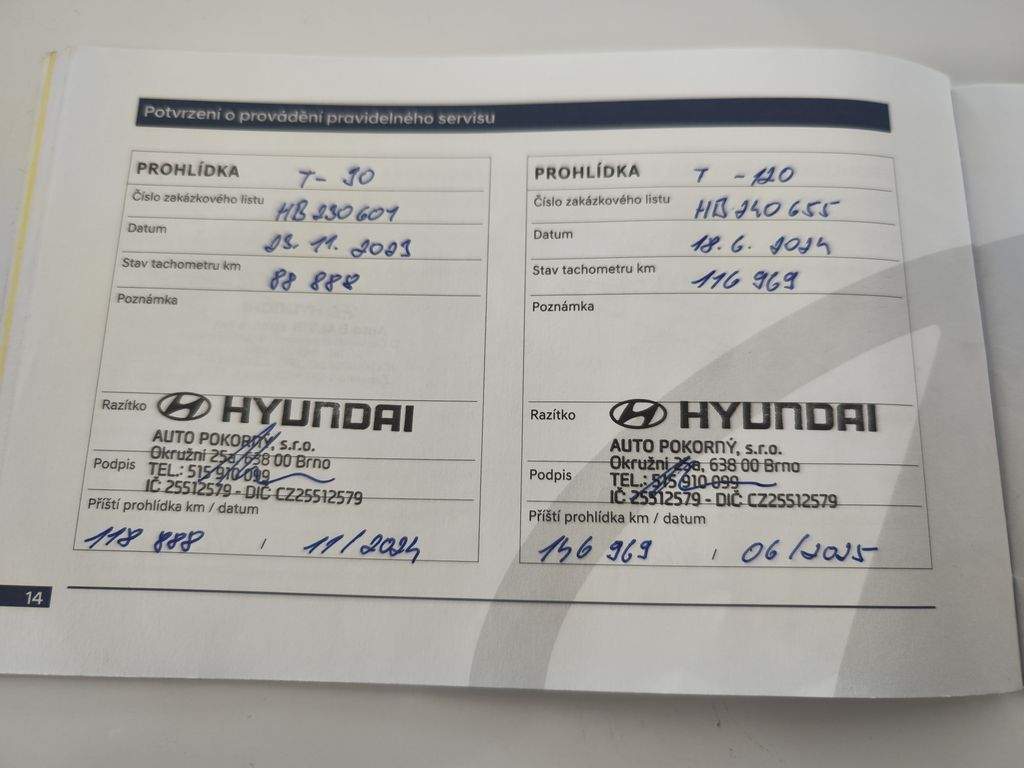 Potvrzení o provádění pravidelného servisu
PROHLÍDKA T- 90
Číslo zakázkového listu HB 230601
Datum 23. 11. 2023
Stav tachometru km 88 888
Poznámka
Razítko HYUNDAI
AUTO POKORNÝ, s.r.o.
Okružní 25a, 638 00 Brno
Podpis TEL.: 515 910 099
IČ 25512579 - DIČ CZ25512579
Příští prohlídka km / datum
118 888 / 11/2024
PROHLÍDKA T - 120
Číslo zakázkového listu HB 240 655
Datum 18. 6. 2024
Stav tachometru km 116 969
Poznámka
Razítko HYUNDAI
AUTO POKORNÝ, s.r.o.
Okružní 25a, 638 00 Brno
Podpis TEL.: 515 910 099
IČ 25512579 - DIČ CZ25512579
Příští prohlídka km / datum
146 969 / 06/2025
14